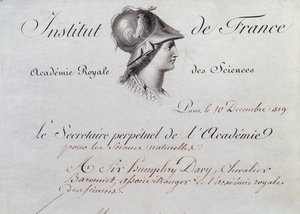 Institut de France
Académie Royale des Sciences
Paris, le 10 Decembre 1819
Le Secretaire perpétuel de l'Académie
pour les Sciences naturelles
A Sir Humphry Davy, Chevalier
Baronnet, associé étranger de l'académie royale
des sciences